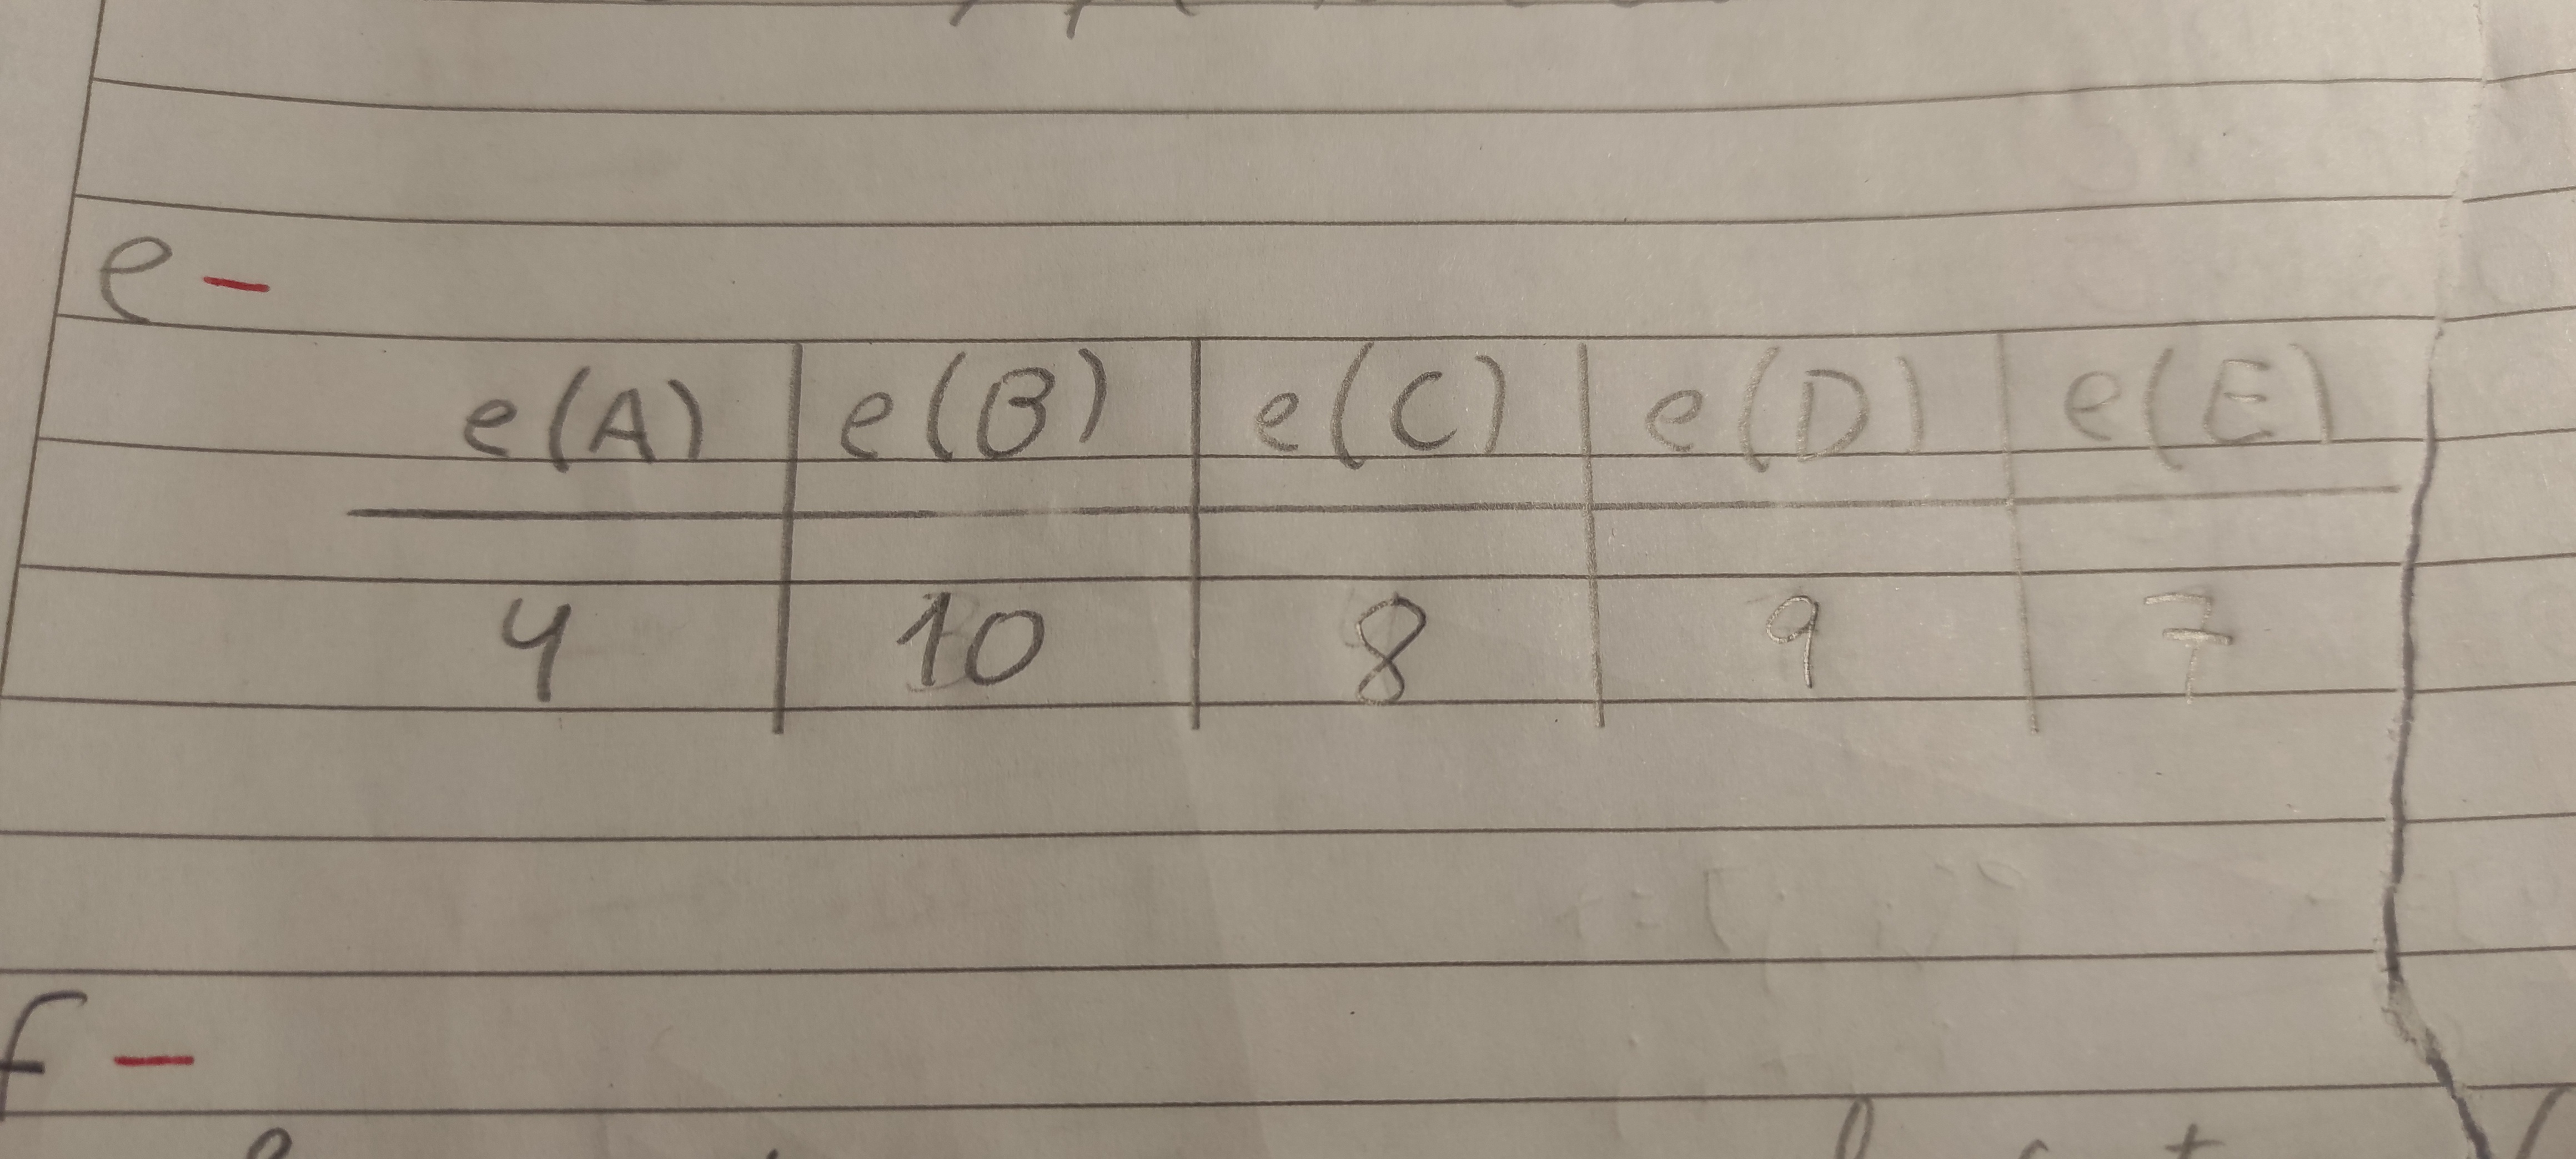 e -
e(A) e(B) e(C) e(D) e(E)
4 10 8 9 7
f -